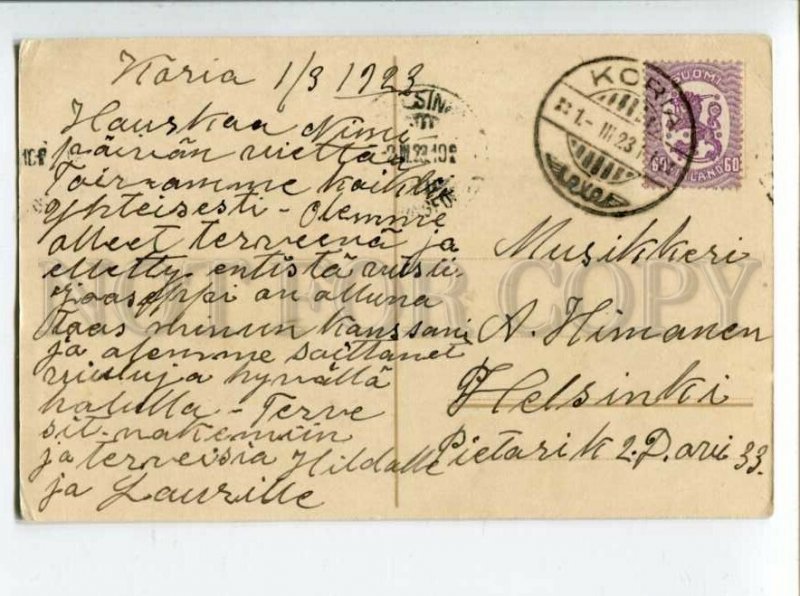 Koria 1/3 1923
Hauskaa Nimi
päivän viettoa
Toivomme kaikki
yhteisesti - Olemme
olleet terveenä ja
eletty entistä
on olluna
Taas minun kanssani
ja olemme soittanet
hyvällä
halulla - Terve
sit. näkemiin
ja terveisiä Hildalle
ja Laurille
KORIA
1.-III.23
SUOMI
60 60
FINLAND
Musikkeri
A. Himanen
Helsinki
Pietarik 2.D. ovi 33.
NOT FOR COPY